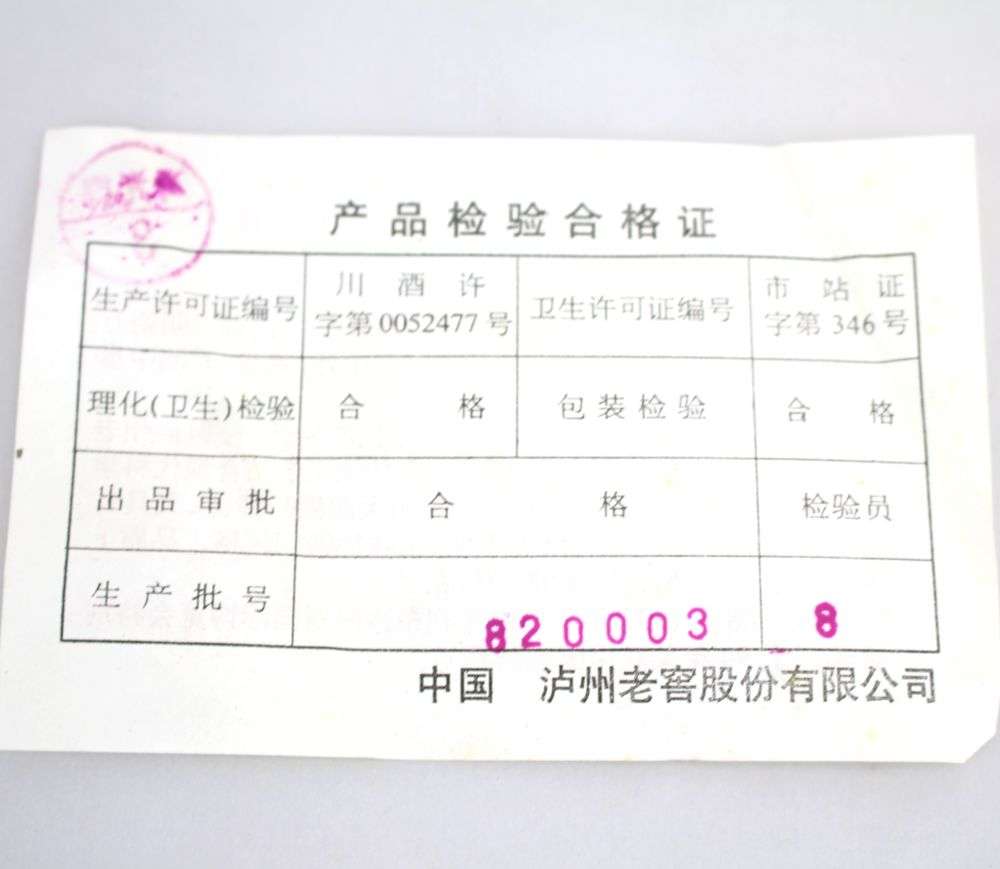 产品检验合格证
生产许可证编号
川酒许
字第0052477号
卫生许可证编号
市站证
字第346号
理化(卫生)检验
合格
包装检验
合格
出品审批
合格
检验员
生产批号
820003
8
中国 泸州老窖股份有限公司